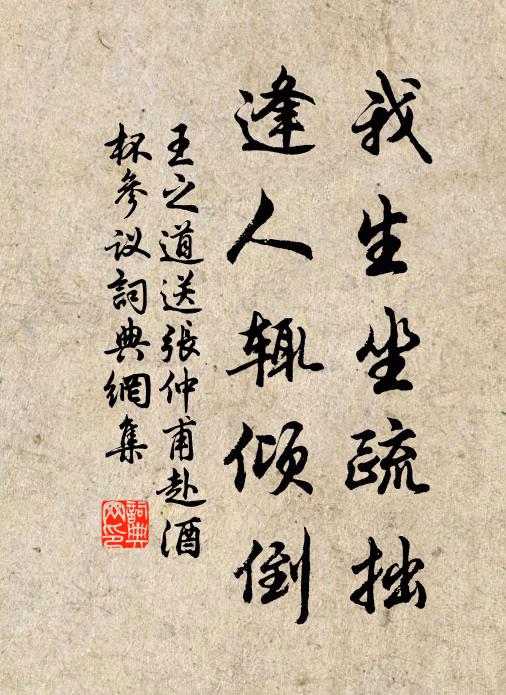 我生坐疏拙
逢人辄倾倒
王之道送張仲甫赴酒
杯參议詞典網集
詞典
网印